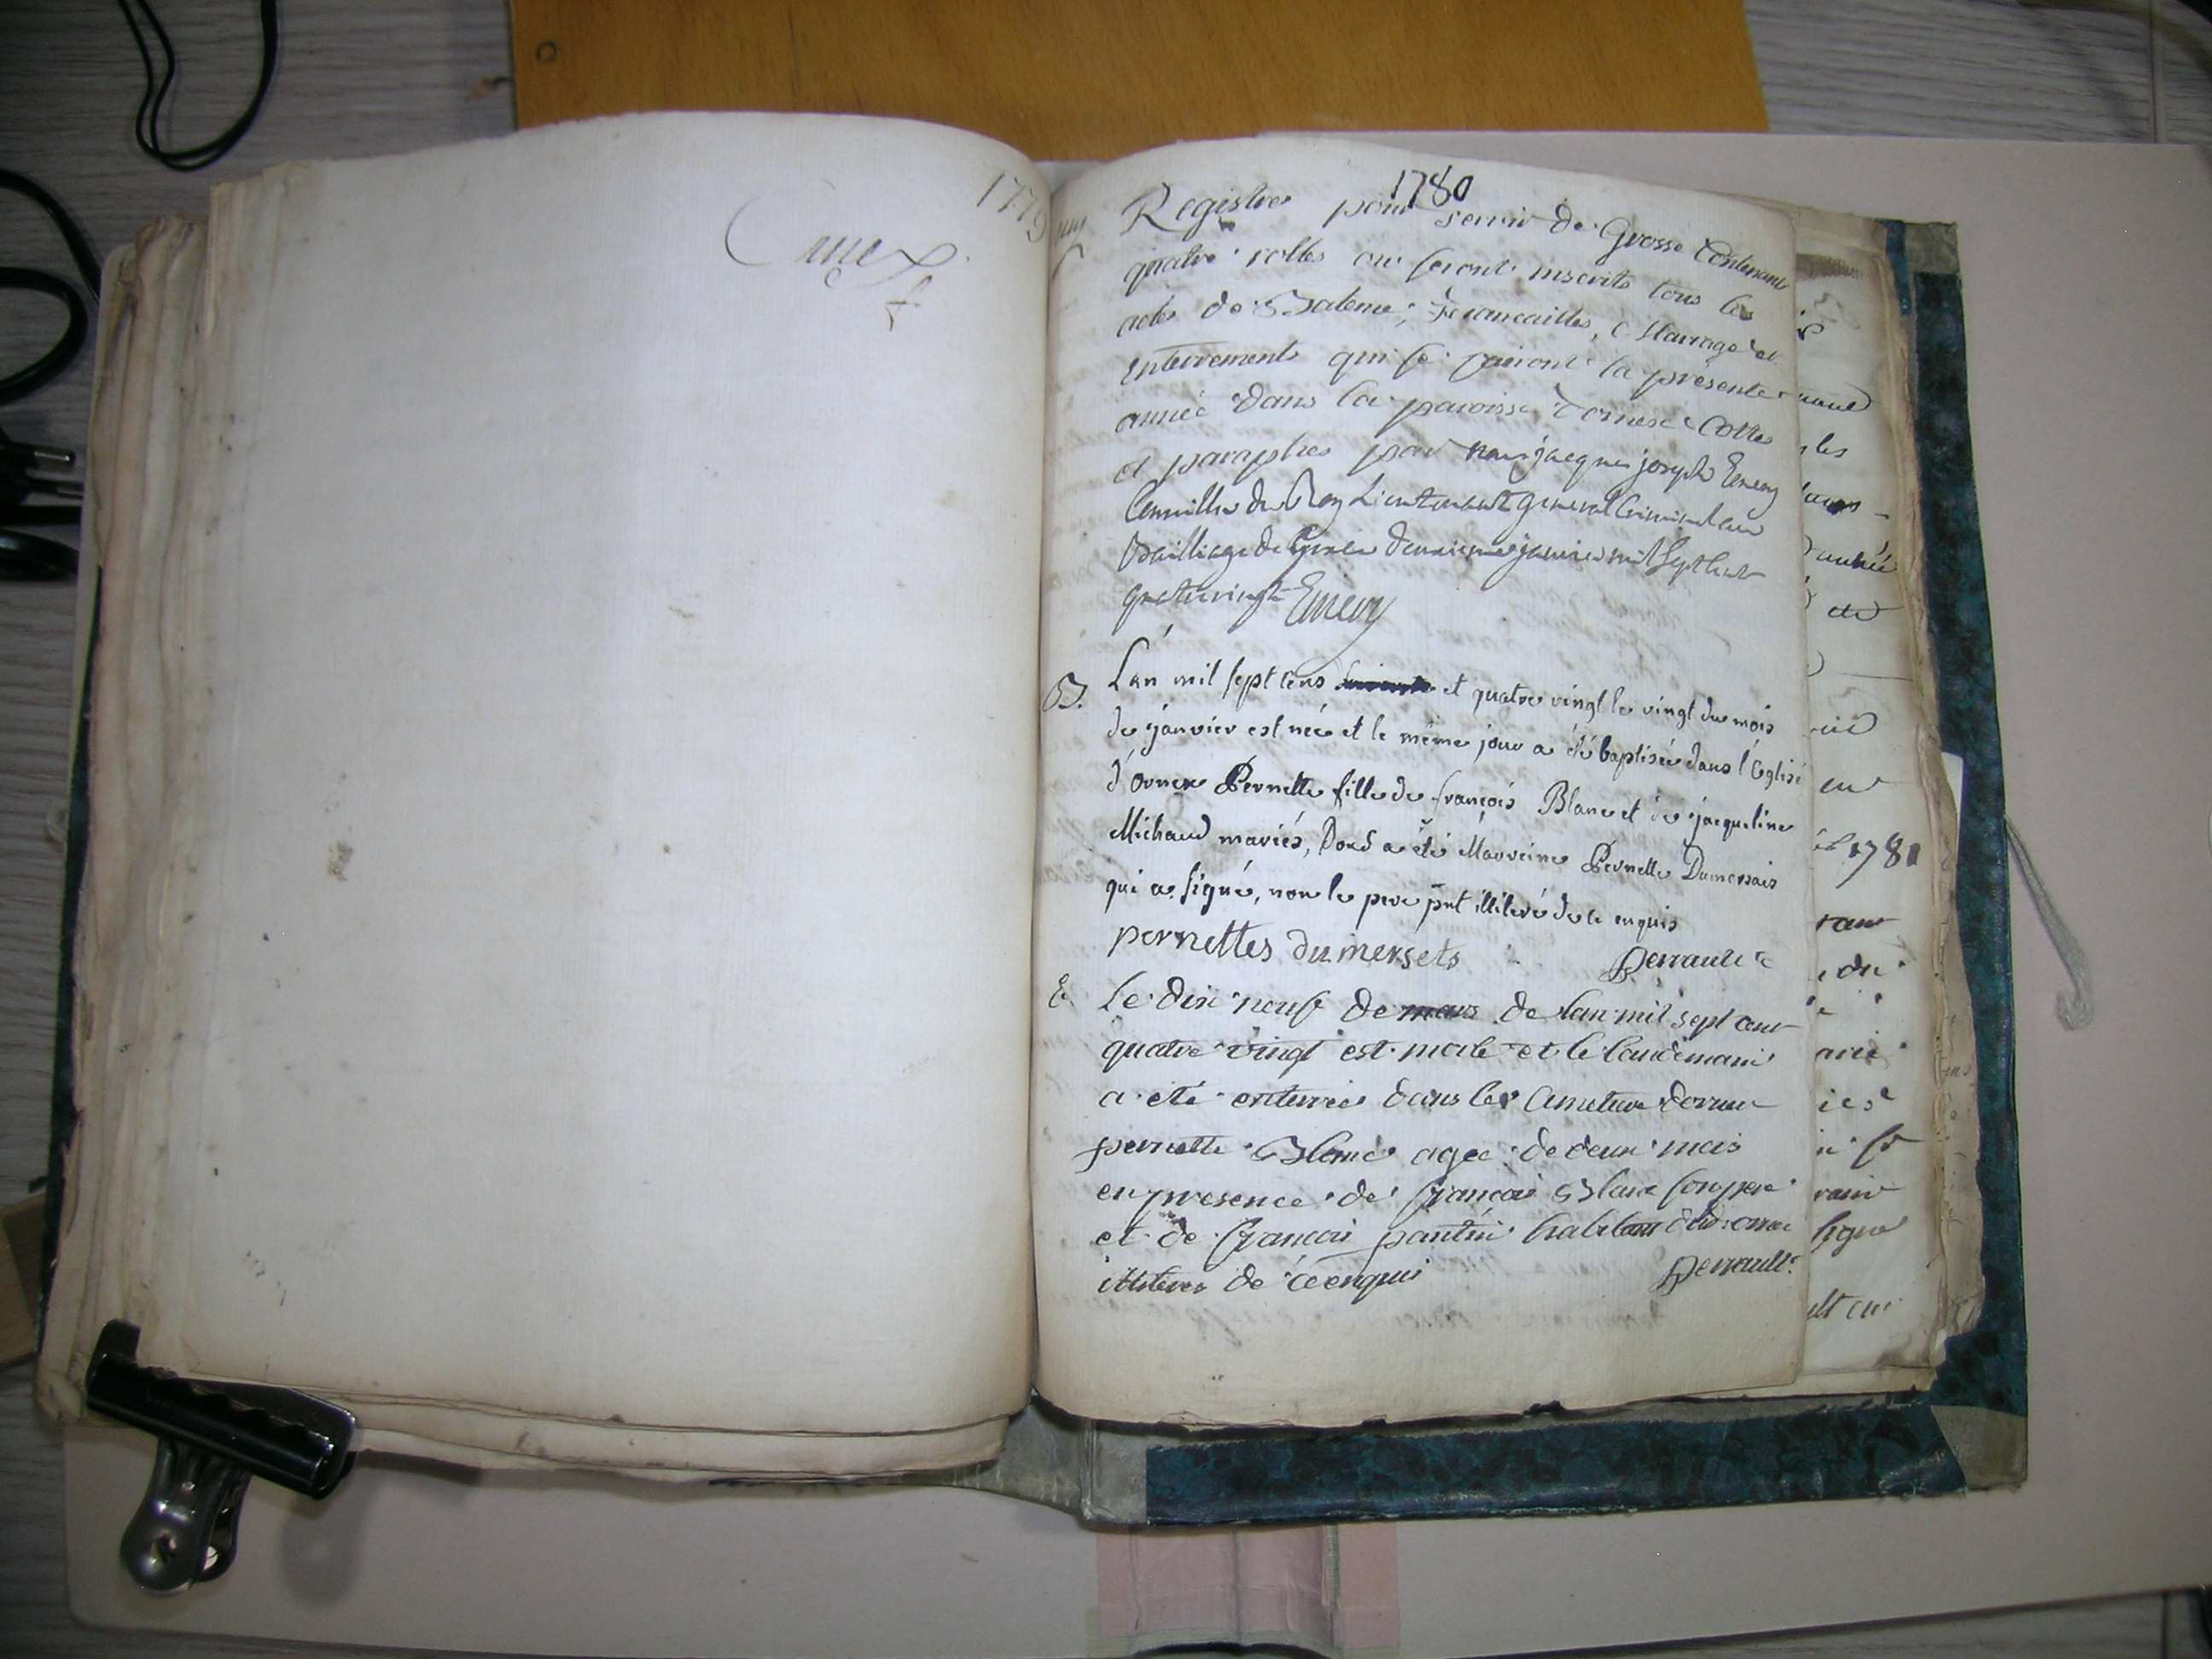 1779
1780
Registre pour servir de Grosse Contenant
quatre rolles ou seront inscrits tous les
actes de Bateme, fiancailles, Mariage et
Enterrements qui se fairont la présente
année dans la paroisse Dornex Cottés
et paraphés par nous jacques joseph Emery
Conseiller du Roy Lieutenant general Criminel au
Bailliage de Gex le deuxieme janvier mil sept cent
quatrevingt Emery
B. L'an mil sept cens et quatre vingt le vingt du mois
de janvier est née et le même jour a été baptisée dans l'Eglise
d'Ornex Pernette fille de françois Blanc et de jacqueline
Michaud mariés, Dond a été Marreine Pernette Dumersais
qui a signé, non le pere pnt illiteré de ce enquis
pernettes du mersets Perrault c
E. Le dix neuf de mars de lan mil sept cent
quatre vingt est morte et le landemain
a eté enterrée dans le Cimetiere dornex
pernette Blanc agée de deux mois
en presence de francois Blanc son pere
et de francois pantin habitant dud: ornex
illiterés de ce enquis Perrault c
1781